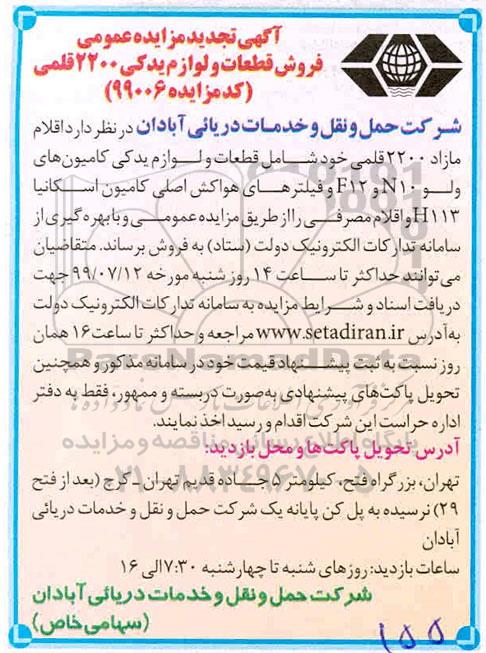 آگهی تجدید مزایده عمومی
فروش قطعات و لوازم یدکی ۲۲۰۰ قلمی
(کد مزایده ۹۹۰۰۶)
شرکت حمل و نقل و خدمات دریائی آبادان در نظر دارد اقلام
مازاد ۲۲۰۰ قلمی خود شامل قطعات و لوازم یدکی کامیون‌های
ولوو N۱۰ و F۱۲ و فیلترهای هواکش اصلی کامیون اسکانیا
H۱۱۳ و اقلام مصرفی را از طریق مزایده عمومی و با بهره گیری از
سامانه تدارکات الکترونیک دولت (ستاد) به فروش برساند. متقاضیان
می‌توانند حداکثر تا ساعت ۱۴ روز شنبه مورخه ۹۹/۰۷/۱۲ جهت
دریافت اسناد و شرایط مزایده به سامانه تدارکات الکترونیک دولت
به آدرس www.setadiran.ir مراجعه و حداکثر تا ساعت ۱۶ همان
روز نسبت به ثبت پیشنهاد قیمت خود در سامانه مذکور و همچنین
تحویل پاکت‌های پیشنهادی به‌صورت دربسته و ممهور، فقط به دفتر
اداره حراست این شرکت اقدام و رسید اخذ نمایند.
آدرس تحویل پاکت‌ها و محل بازدید:
تهران، بزرگراه فتح، کیلومتر ۵ جاده قدیم تهران ـ کرج (بعد از فتح
۲۹) نرسیده به پل کن پایانه یک شرکت حمل و نقل و خدمات دریائی
آبادان
ساعات بازدید: روزهای شنبه تا چهارشنبه ۷:۳۰ الی ۱۶
شرکت حمل و نقل و خدمات دریائی آبادان
(سهامی خاص)
۱۵۵
ParsNamadData
پایگاه اطلاع رسانی مناقصه و مزایده
۰۲۱-۸۸۳۴۹۶۷۰-۵